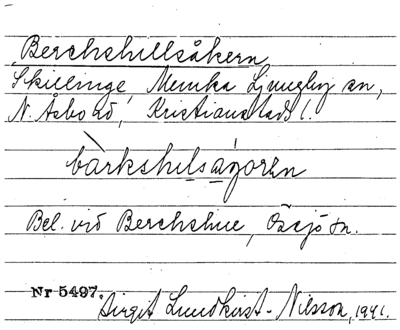 Berchshillsåkern
Skillinge, Munka Ljungby sn,
N. Åsbo hd, Kristianstads l.
bàrkshilsågorən
Bel. vid Berchshill, Össjö sn.
Nr 5497. Birgit Lundkvist-Nilsson, 1941.